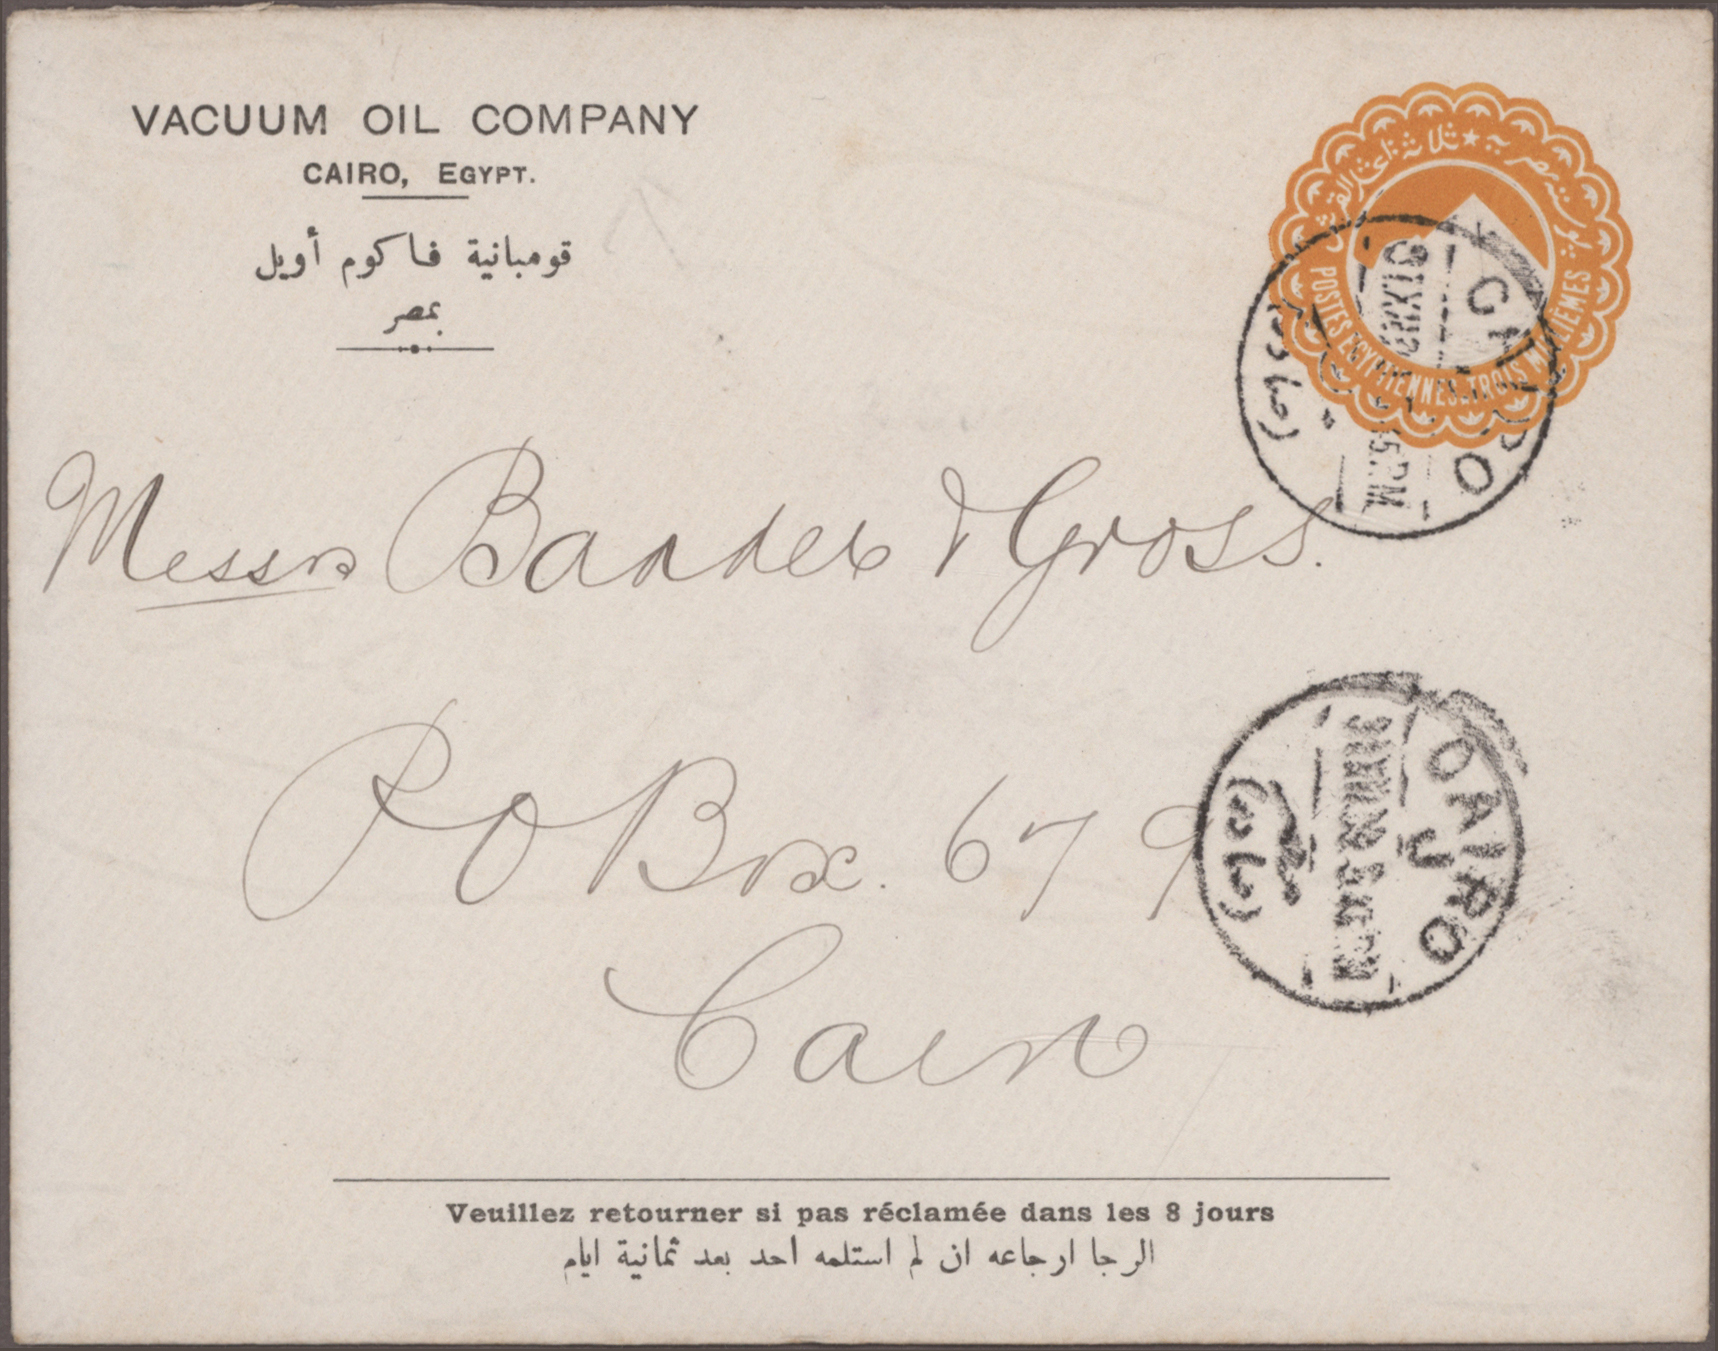 VACUUM OIL COMPANY
CAIRO, EGYPT.
قومبانية فاكوم أويل
بمصر
ثلاثة اعشار القرش ★ بوستة مصرية
POSTES EGYPTIENNES. TROIS MILLIEMES
CAIRO
5.PM
(صادر)
Messrs Bander & Gross.
P O Box. 679
Cairo
CAIRO
J
(صادر)
Veuillez retourner si pas réclamée dans les 8 jours
الرجا ارجاعه ان لم استلمه احد بعد ثمانية ايام